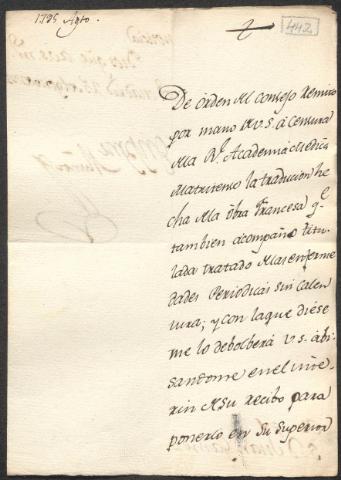 1795 Agto.
442
De orden del consejo remito
por mano de V. S. à Censura
de la Rl. Academia Medica
Matritense la traducion he
cha de la obra Francesa qe
tambien acompaño titu
lada tratado de las enferme
dades Periodicas sin calen
tura; y con la que diese
me lo debolberá V. S. abi
sandome en el inte
rin de su recibo para
ponerlo en su Superior